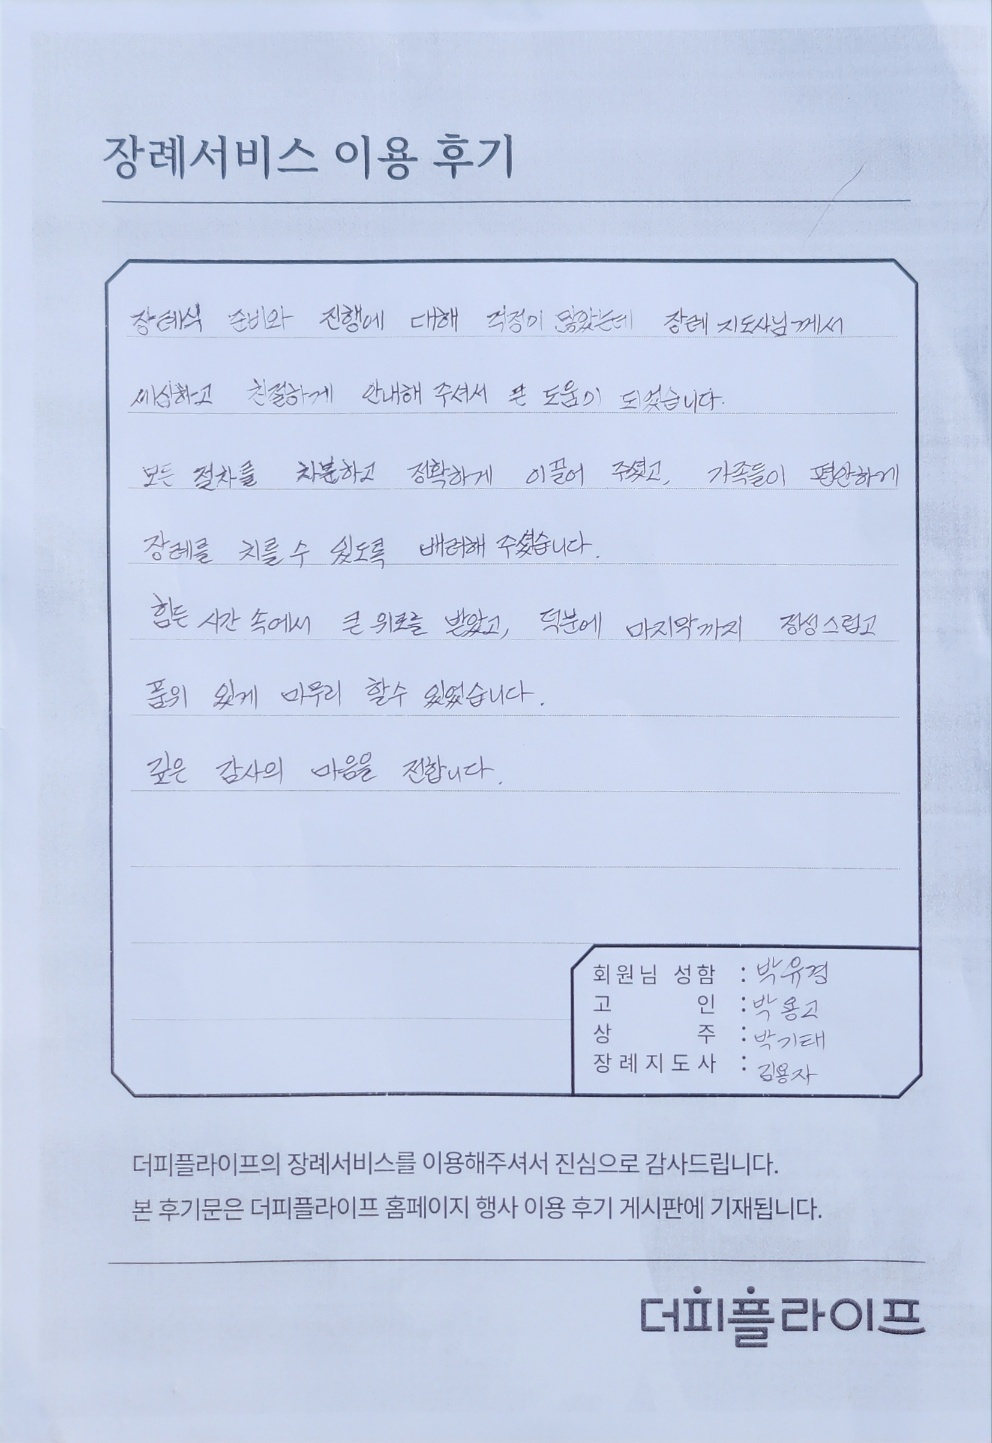 장례서비스 이용 후기
장례식 준비와 진행에 대해 걱정이 많았는데 장례 지도사님께서
세심하고 친절하게 안내해 주셔서 큰 도움이 되었습니다.
모든 절차를 차분하고 정확하게 이끌어 주셨고, 가족들이 편안하게
장례를 치를 수 있도록 배려해 주셨습니다.
힘든 시간 속에서 큰 위로를 받았고, 덕분에 마지막까지 정성스럽고
품위 있게 마무리 할수 있었습니다.
깊은 감사의 마음을 전합니다.
회원님 성함 : 박유경
고 인 : 박용고
상 주 : 박기태
장례지도사 : 김용자
더피플라이프의 장례서비스를 이용해주셔서 진심으로 감사드립니다.
본 후기문은 더피플라이프 홈페이지 행사 이용 후기 게시판에 기재됩니다.
더피플라이프